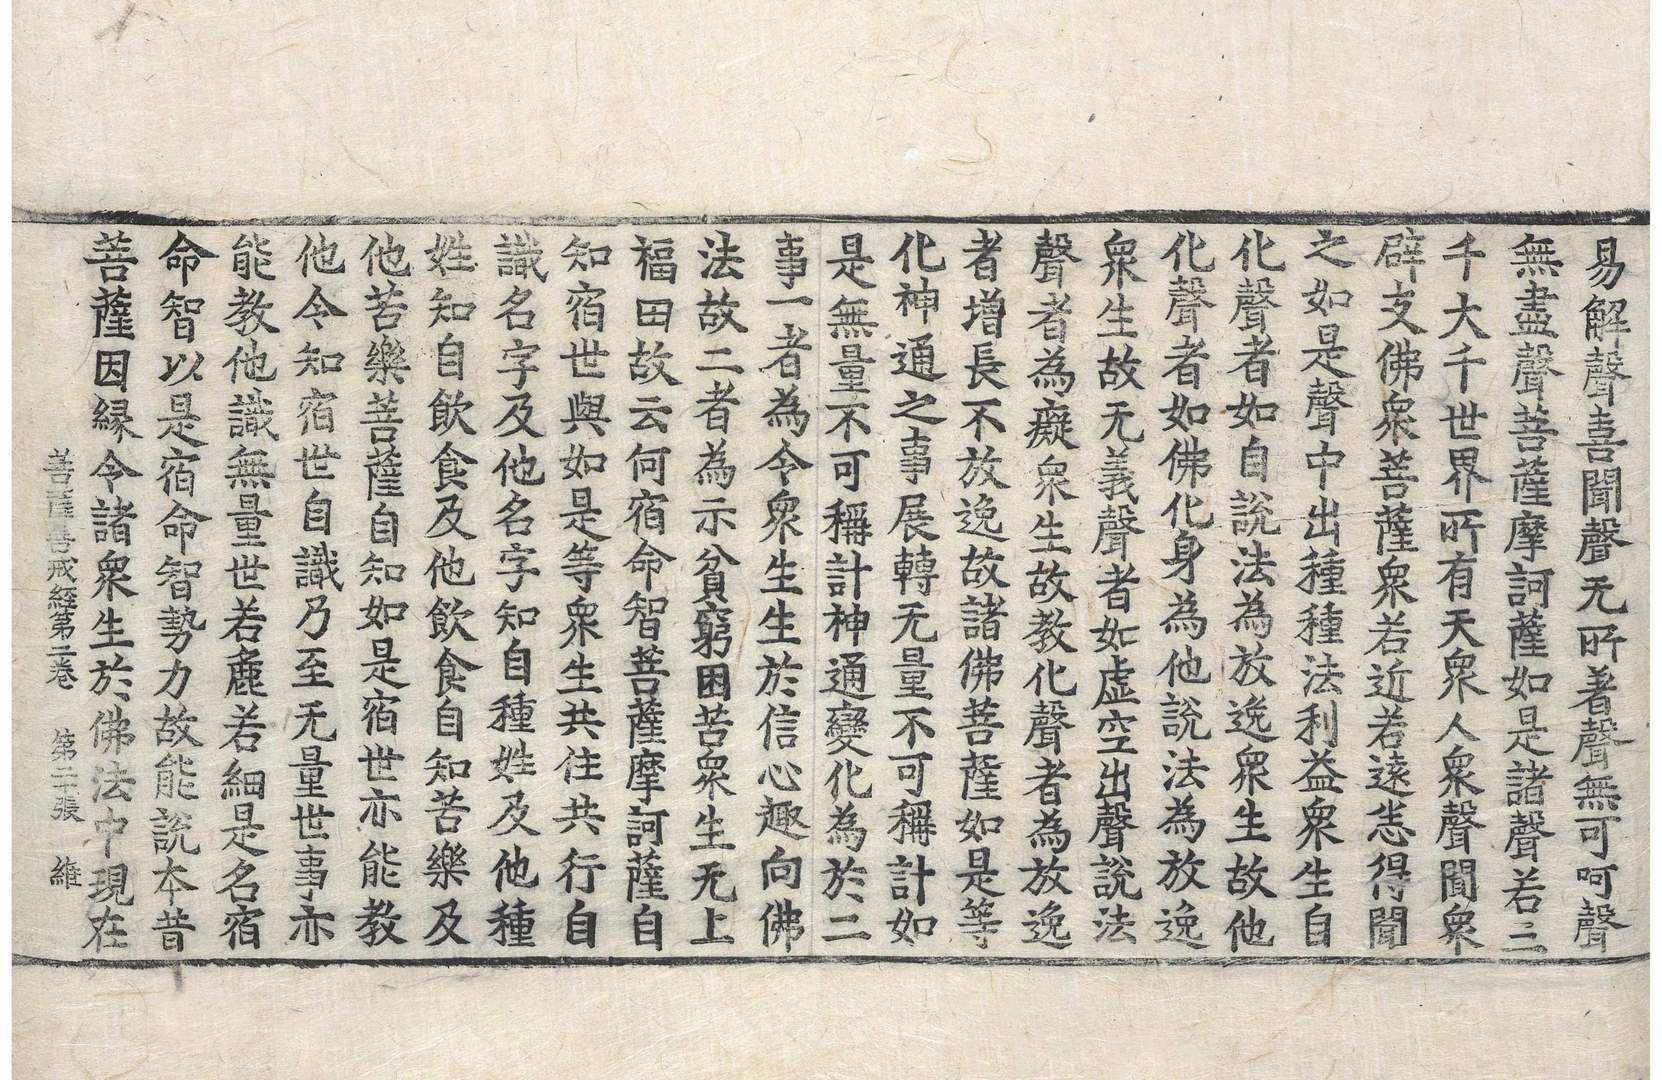 易解聲喜聞聲无所著聲無可呵聲
無盡聲菩薩摩訶薩如是諸聲若三
千大千世界所有天衆人衆聲聞衆
辟支佛衆菩薩衆若近若遠悉得聞
之如是聲中出種種法利益衆生自
化聲者如自說法為放逸衆生故他
化聲者如佛化身為他說法為放逸
衆生故无義聲者如虛空出聲說法
聲者為癡衆生故教化聲者為放逸
者增長不放逸故諸佛菩薩如是等
化神通之事展轉无量不可稱計如
是無量不可稱計神通變化為於二
事一者為令衆生生於信心趣向佛
法故二者為示貧窮困苦衆生无上
福田故云何宿命智菩薩摩訶薩自
知宿世與如是等衆生共住共行自
識名字及他名字知自種姓及他種
姓知自飲食及他飲食自知苦樂及
他苦樂菩薩自知如是宿世亦能教
他令知宿世自識乃至无量世事亦
能教他識無量世若麁若細是名宿
命智以是宿命智勢力故能說本昔
菩薩因縁令諸衆生於佛法中現在
菩薩善戒經第二卷　第二十張　維